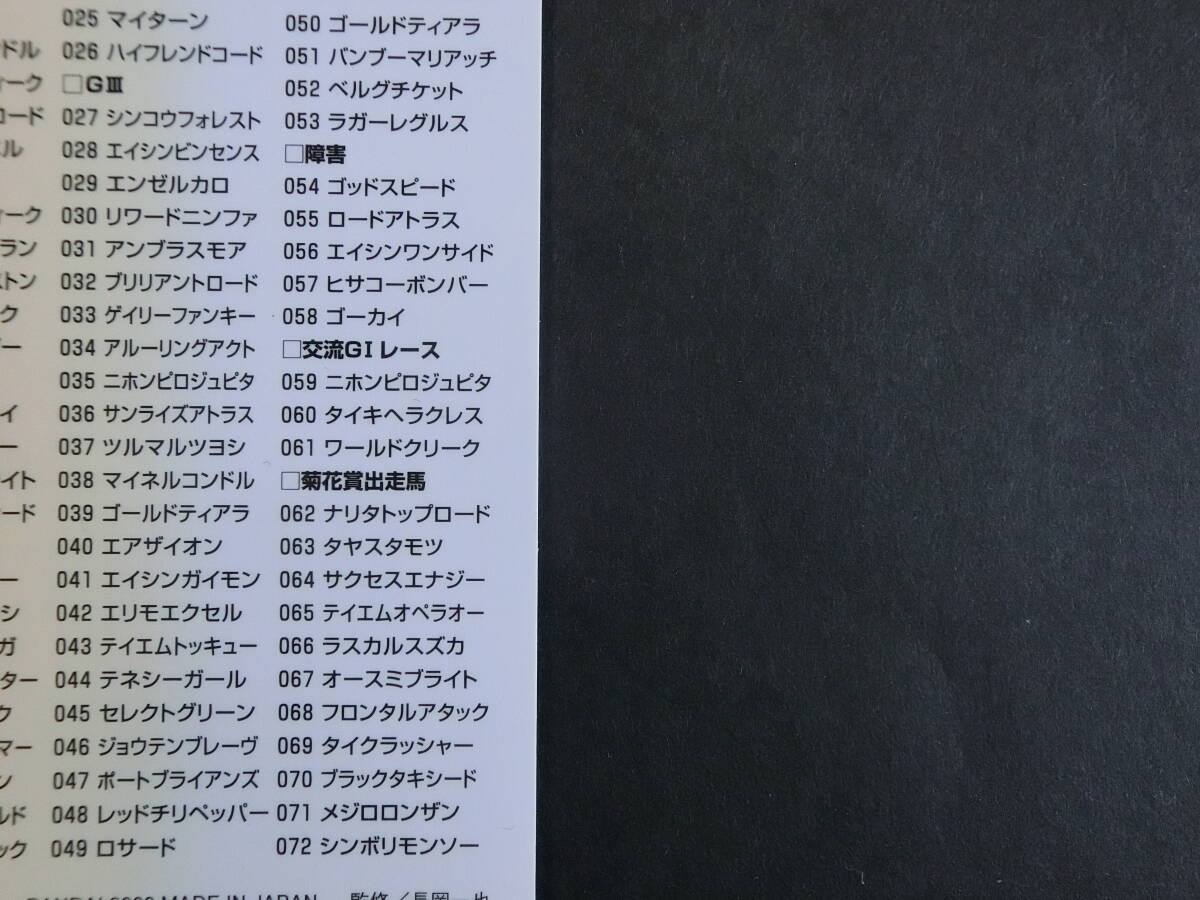 ドル
ーク
ロード
ル
ーク
ラン
ストン
ク
ー
イ
ー
イト
ード
ー
シ
ガ
ター
ク
マー
ン
ルド
ック
025 マイターン
026 ハイフレンドコード
□GⅢ
027 シンコウフォレスト
028 エイシンビンセンス
029 エンゼルカロ
030 リワードニンファ
031 アンブラスモア
032 ブリリアントロード
033 ゲイリーファンキー
034 アルーリングアクト
035 ニホンピロジュピタ
036 サンライズアトラス
037 ツルマルツヨシ
038 マイネルコンドル
039 ゴールドティアラ
040 エアザイオン
041 エイシンガイモン
042 エリモエクセル
043 テイエムトッキュー
044 テネシーガール
045 セレクトグリーン
046 ジョウテンブレーヴ
047 ポートブライアンズ
048 レッドチリペッパー
049 ロサード
050 ゴールドティアラ
051 バンブーマリアッチ
052 ベルグチケット
053 ラガーレグルス
□障害
054 ゴッドスピード
055 ロードアトラス
056 エイシンワンサイド
057 ヒサコーボンバー
058 ゴーカイ
□交流GⅠレース
059 ニホンピロジュピタ
060 タイキヘラクレス
061 ワールドクリーク
□菊花賞出走馬
062 ナリタトップロード
063 タヤスタモツ
064 サクセスエナジー
065 テイエムオペラオー
066 ラスカルスズカ
067 オースミブライト
068 フロンタルアタック
069 タイクラッシャー
070 ブラックタキシード
071 メジロロンザン
072 シンボリモンソー
MADE IN JAPAN 監修／長岡一也